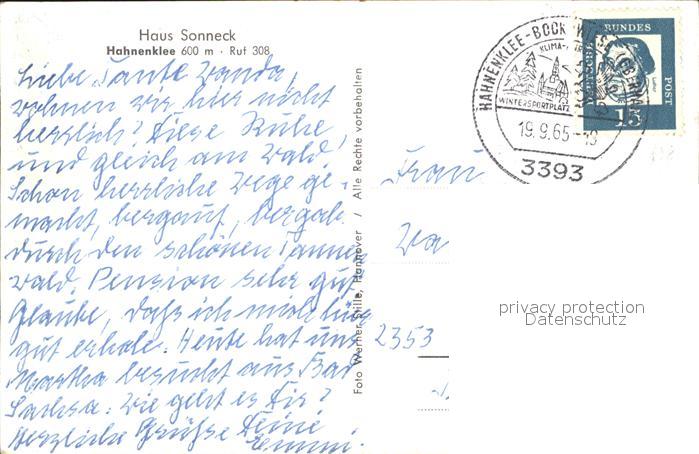 Haus Sonneck
Hahnenklee 600 m · Ruf 308
Liebe Tante Wanda,
wohnen wir hier nicht
herrlich? Diese Ruhe,
und gleich am Wald!
Schon herrliche Wege ge-
macht, bergauf, bergab
durch den schönen Tannen
wald. Pension sehr gut
Glaube, daß ich mich hier
gut erhole. Heute hat uns
Martha besucht aus Bad
Sachsa. Wie geht es Dir?
Herzliche Grüsse Deine
Emmi.
Foto Werner Stille, Hannover / Alle Rechte vorbehalten
HAHNENKLEE-BOCKSWIESE
WINTERSPORTPLATZ
19.9.65-13
3393
DEUTSCHE BUNDESPOST
15
Frau
Wa
2353
privacy protection
Datenschutz